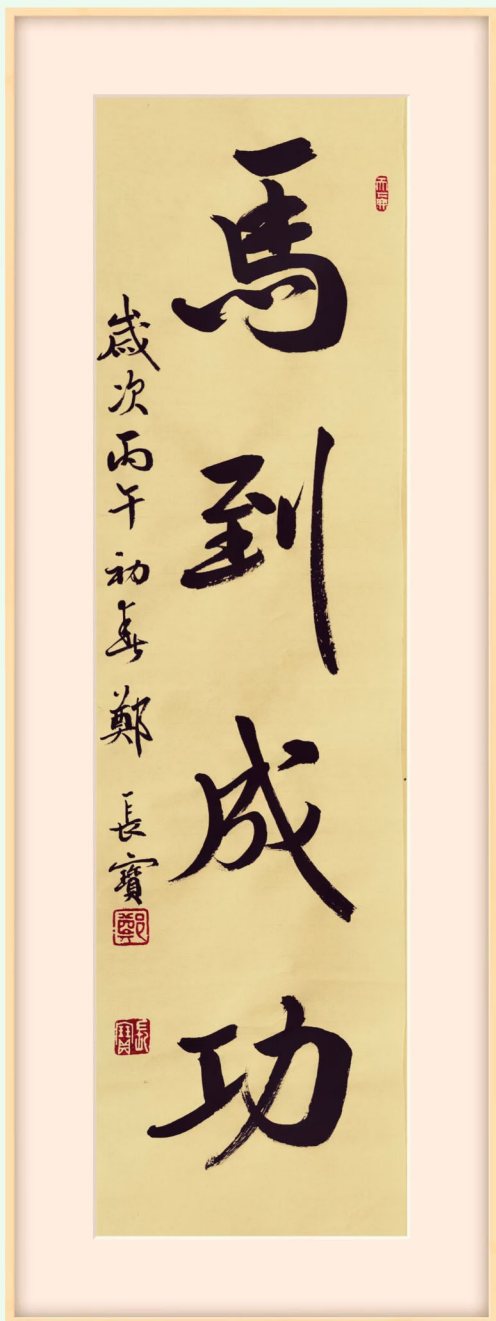 馬到成功
歲次丙午初春鄭長寶
鄭
長寶